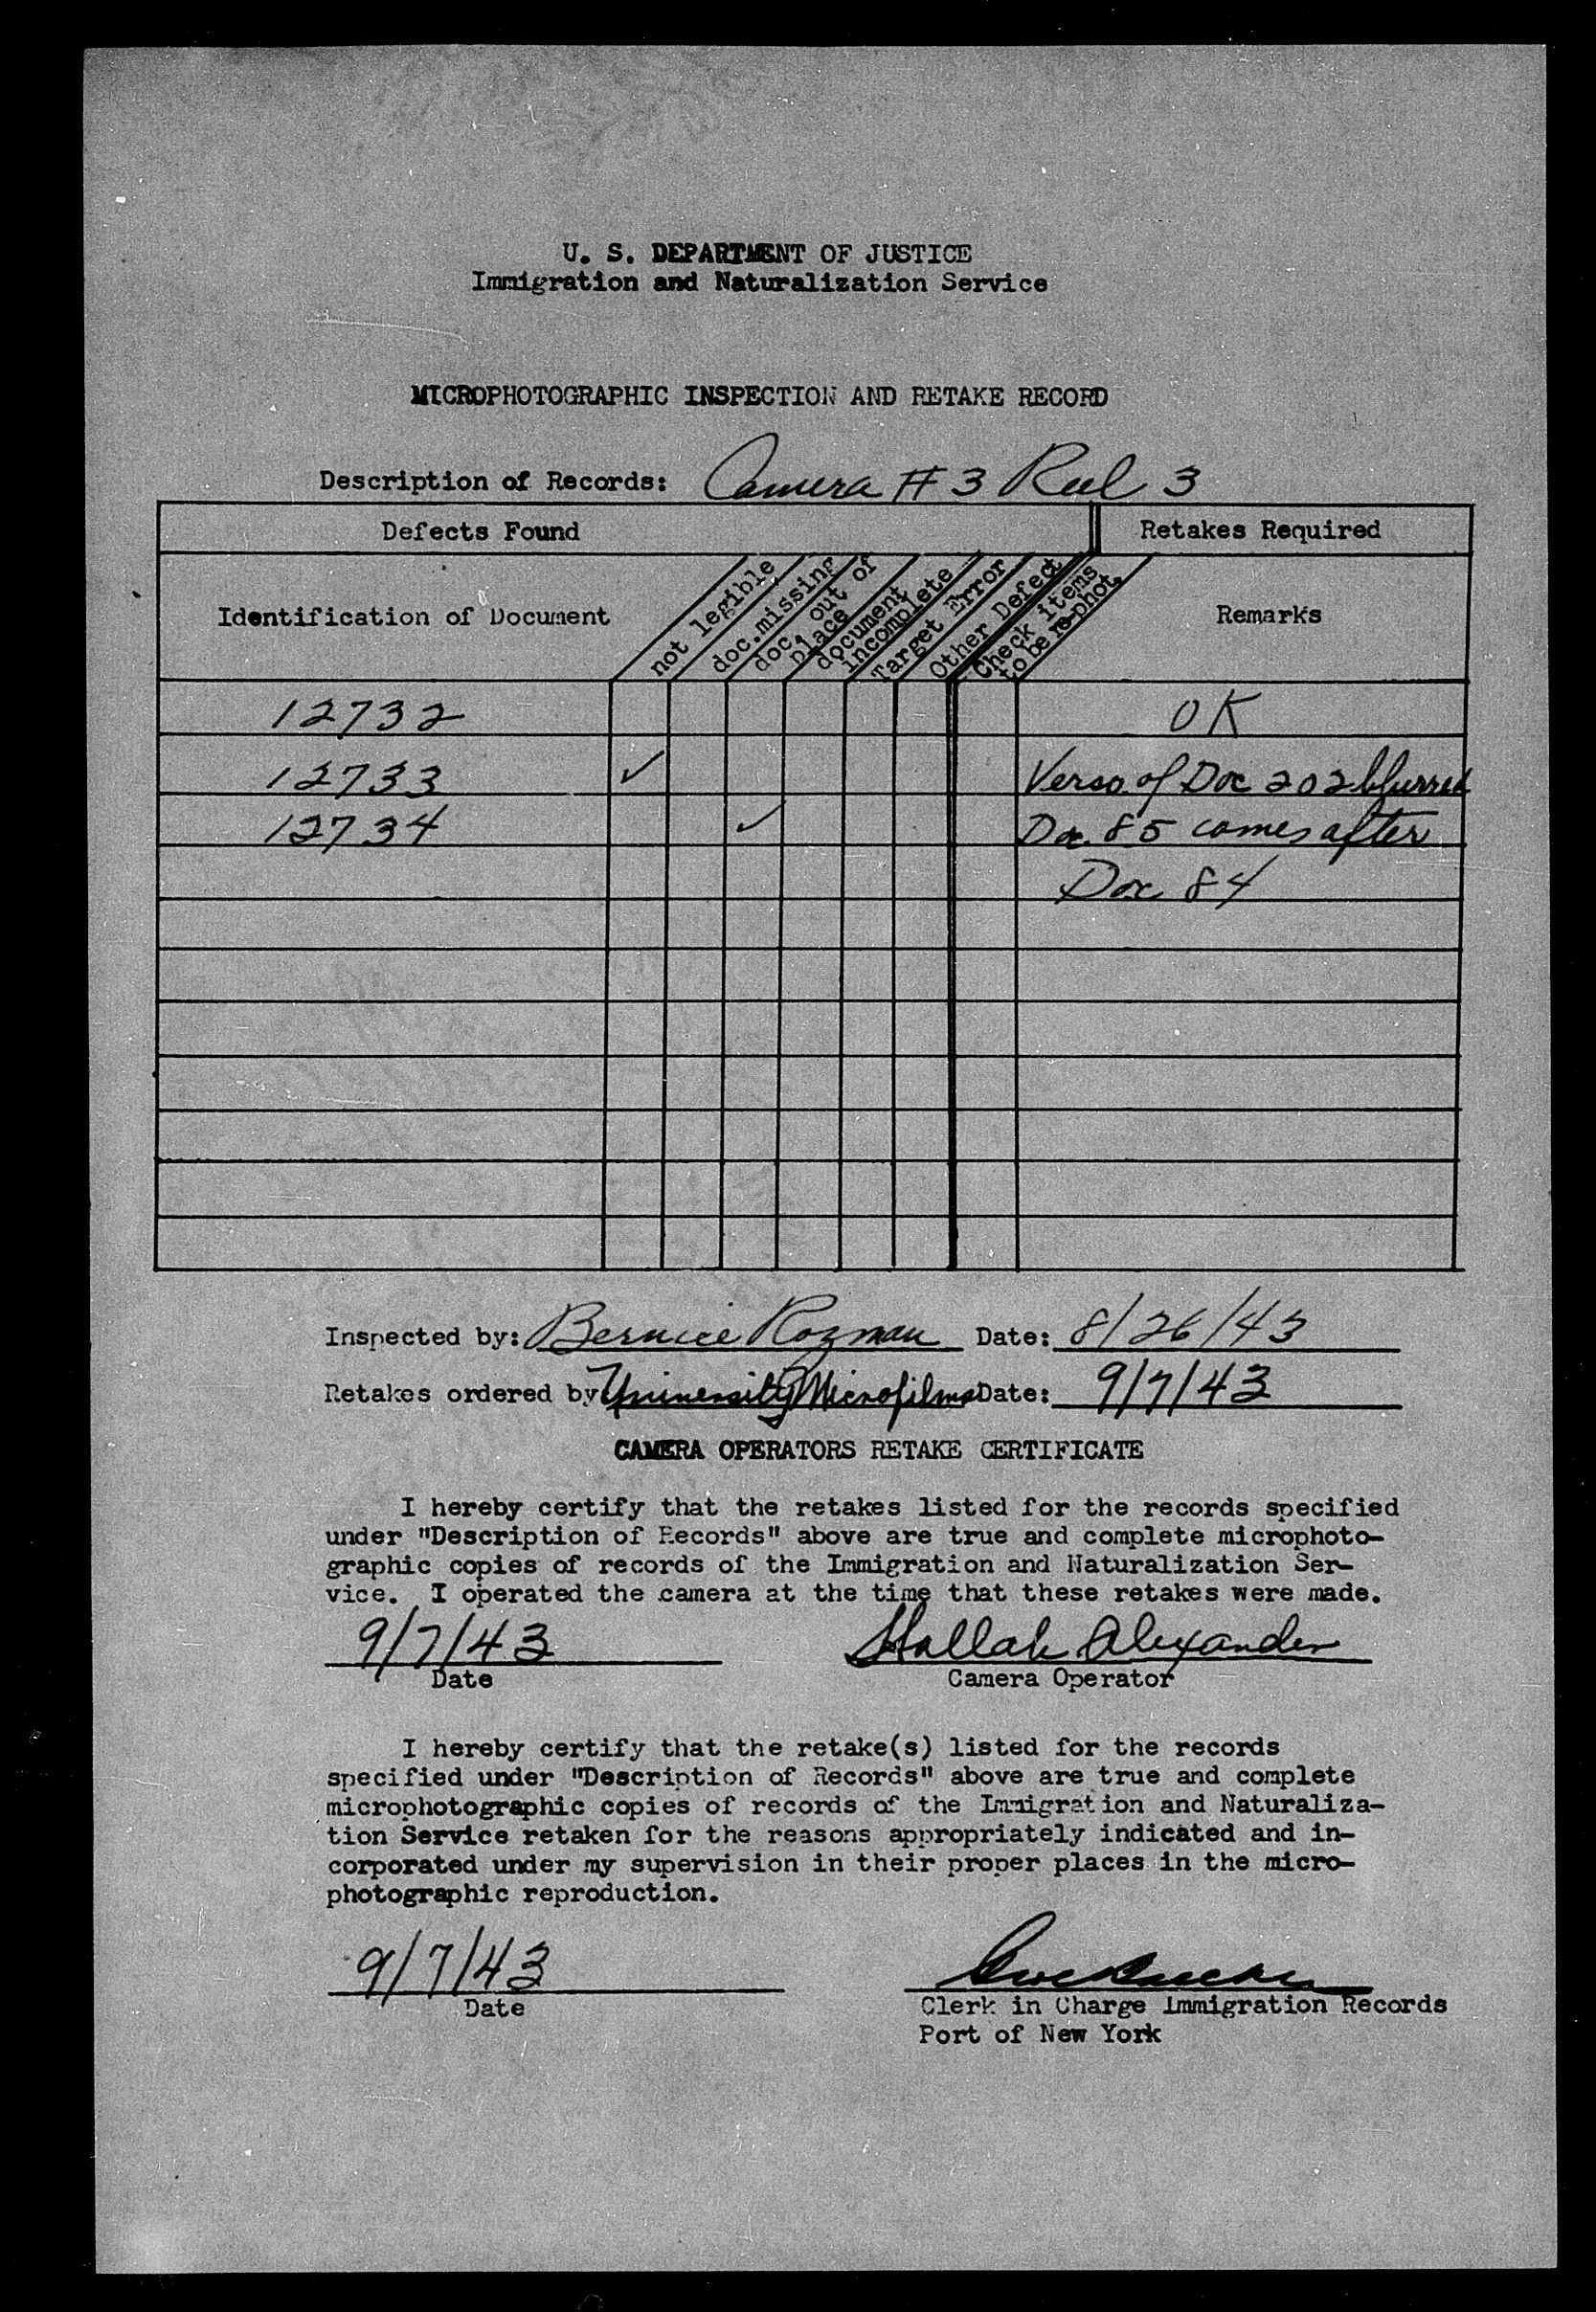 U. S. DEPARTMENT OF JUSTICE
Immigration and Naturalization Service
MICROPHOTOGRAPHIC INSPECTION AND RETAKE RECORD
Description of Records: Camera # 3 Reel 3
Defects Found
Retakes Required
Identification of Document
not legible
doc.missing
doc. out of
place
document
incomplete
Target Error
Other Defect
Check items
to be re-phot.
Remarks
12732 OK
12733 ✓ Verso of Doc 202 blurred
12734 ✓ Doc. 85 comes after
Doc 84
Inspected by: Bernice Rozman Date: 8/26/43
Retakes ordered by University Microfilms Date: 9/7/43
CAMERA OPERATORS RETAKE CERTIFICATE
I hereby certify that the retakes listed for the records specified
under "Description of Records" above are true and complete microphoto-
graphic copies of records of the Immigration and Naturalization Ser-
vice. I operated the camera at the time that these retakes were made.
9/7/43 Hallah Alexander
Date Camera Operator
I hereby certify that the retake(s) listed for the records
specified under "Description of Records" above are true and complete
microphotographic copies of records of the Immigration and Naturaliza-
tion Service retaken for the reasons appropriately indicated and in-
corporated under my supervision in their proper places in the micro-
photographic reproduction.
9/7/43
Date
Clerk in Charge Immigration Records
Port of New York